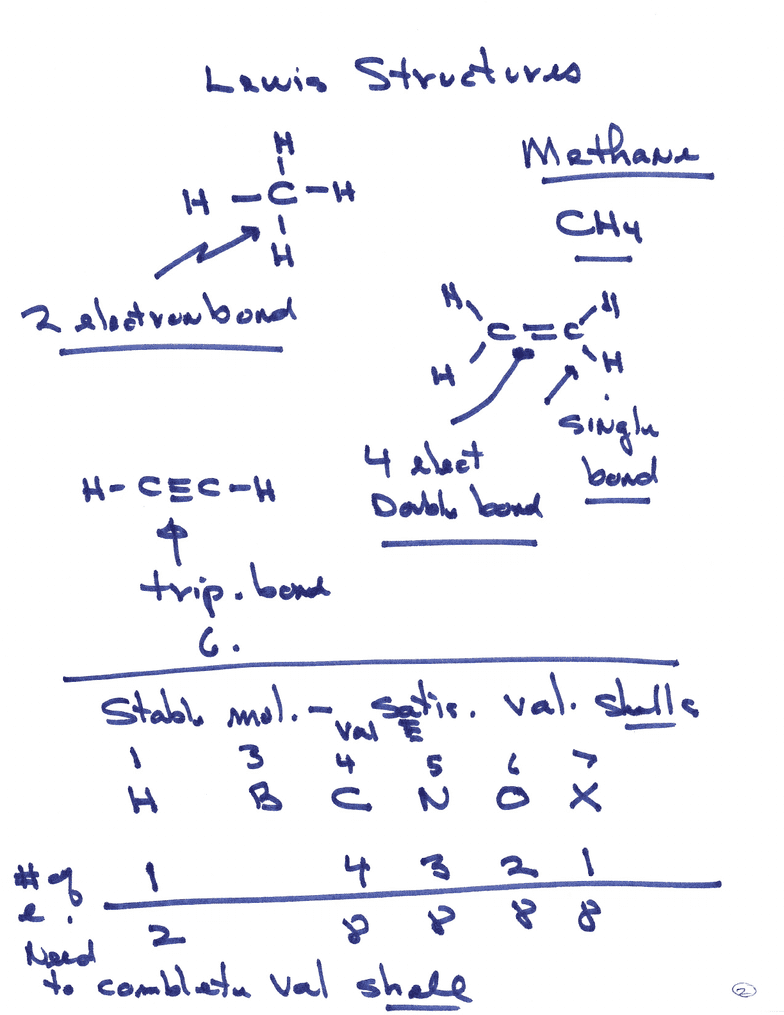 Lewis Structures
Methane
CH4
H
H – C – H
H
2 electron bond
H H
C = C
H H
4 elect
Double bond
single
bond
H – C ≡ C – H
trip. bond
6.
Stabl mol. – Satis. val. shells
val E
1 3 4 5 6 7
H B C N O X
# of
e.
Need
1 4 3 2 1
2 8 8 8 8
to complete val shell
2